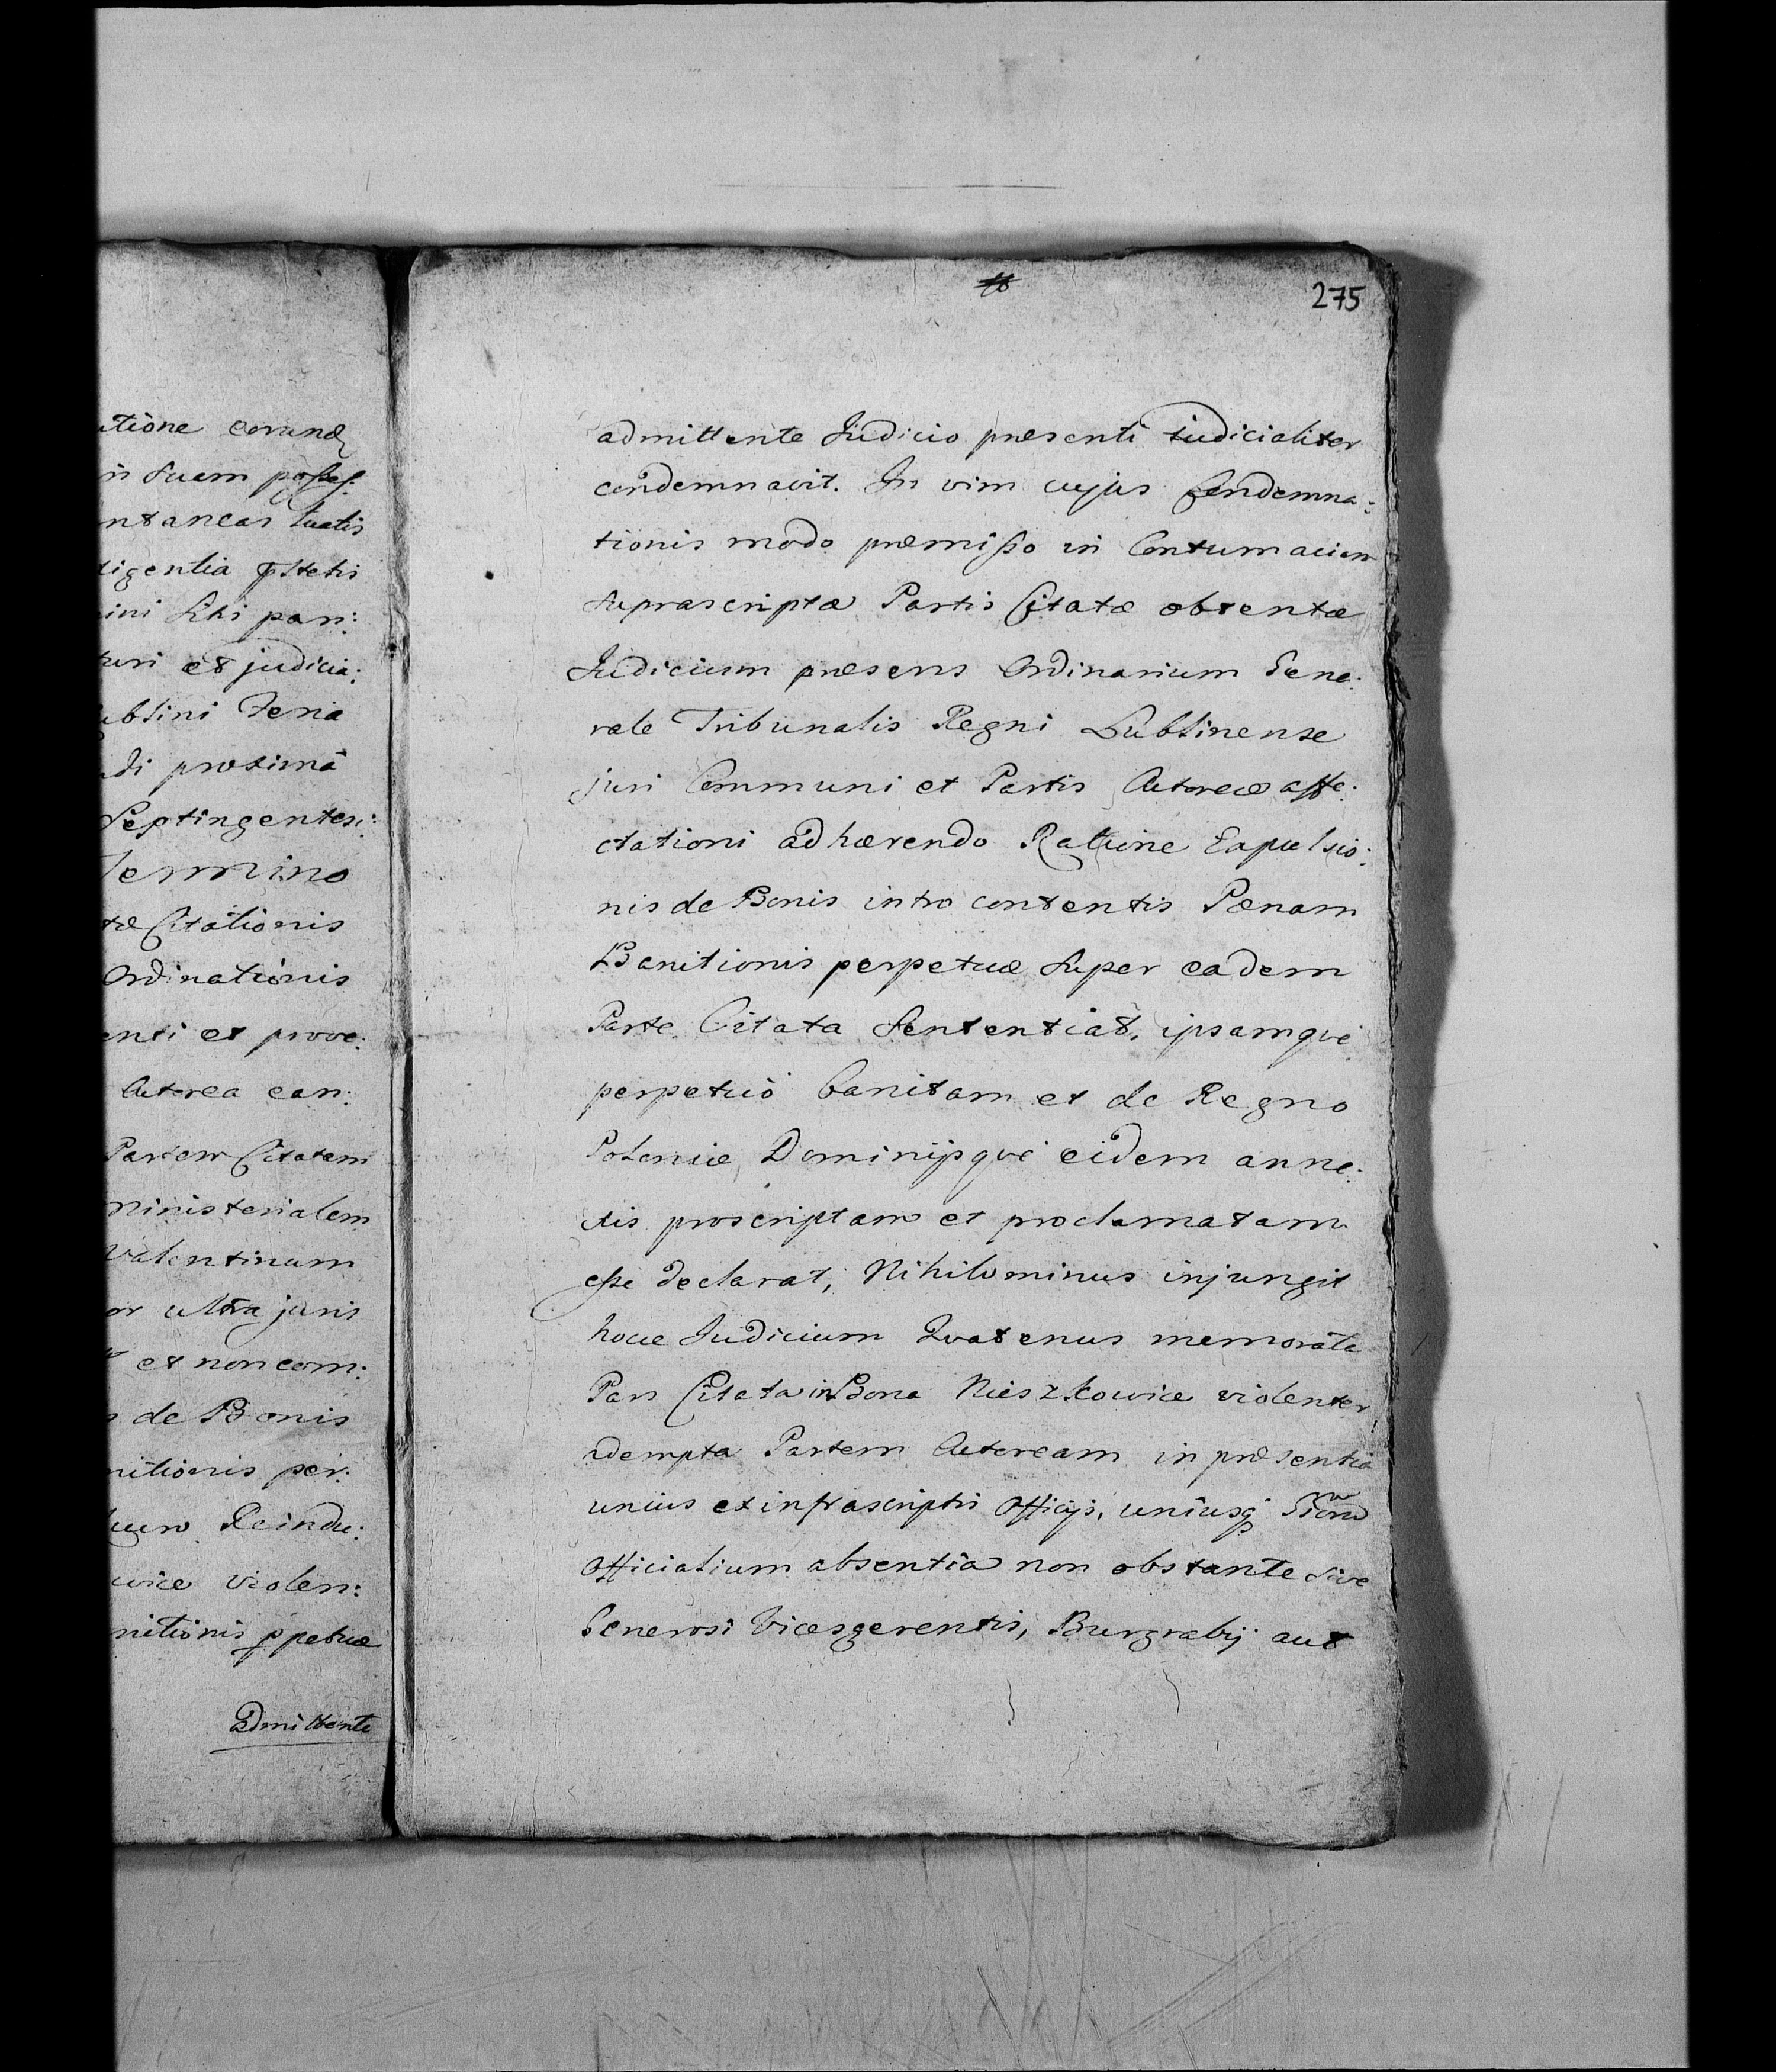 ntione eorund
is suam posses:
ntaneas luatis
ligentia
ini sibi par:
turi et judicia:
ublini Feria
di proxima
Septingentesi:
Termino
tæ Citationis
Ordinationis
enti et prove:
Actorea ean:
Partem Citatam
Ministerialem
Valentinum
or ultra juris
et non com:
s de Bonis
nitionis per:
Reindu:
wice violen:
nitionis ppetuæ
admittente
275
admittente Judicio præsenti judicialiter
condemnavit. In vim cujus Condemna:
tionis modo præmisso in Contumaciam
suprascriptæ Partis Citatæ obtentæ
Judicium præsens Ordinarium Gene:
rale Tribunalis Regni Lublinense
juri Communi et Partis Actoreæ affe:
ctationi adhærendo Ratione Expulsio:
nis de Bonis intro contentis Pænam
Banitionis perpetuæ super eadem
Parte Citata sententiat, ipsamque
perpetuo banitam et de Regno
Poloniæ Dominijsque eidem anne:
xis proscriptam et proclamatam
esse declarat, Nihilominus injungit
hocce Judicium Quatenus memorata
Pars Citata in Bona Nieszkowice violenter
adempta Partem Actoream in præsentia
unius ex infrascriptis Officijs, uniusq
Officialium absentia non obstante sive
Generosi Vicesgerentis, Burgrabij aut